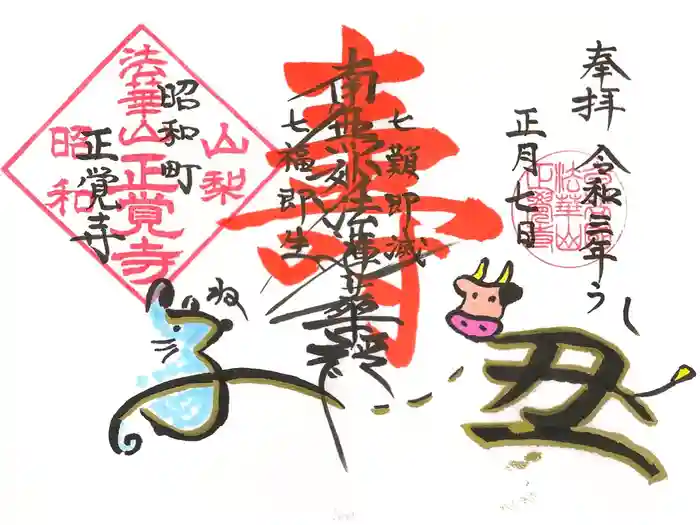 奉拝
令和三年うし
正月七日
法華山
正覚寺
寿
七難即滅
南無妙法蓮華経
七福即生
山梨
昭和町
正覚寺
法華山正覚寺
昭和
ね
子
丑